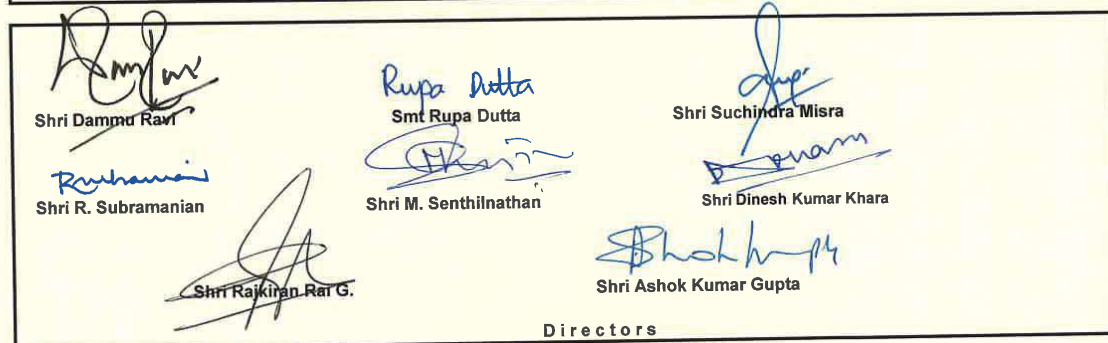 Rupa Dutta
Shri Dammu Ravi
Smt Rupa Dutta
Shri Suchindra Misra
Shri R. Subramanian
Shri M. Senthilnathan
Shri Dinesh Kumar Khara
Shri Rajkiran Rai G.
Shri Ashok Kumar Gupta
Directors